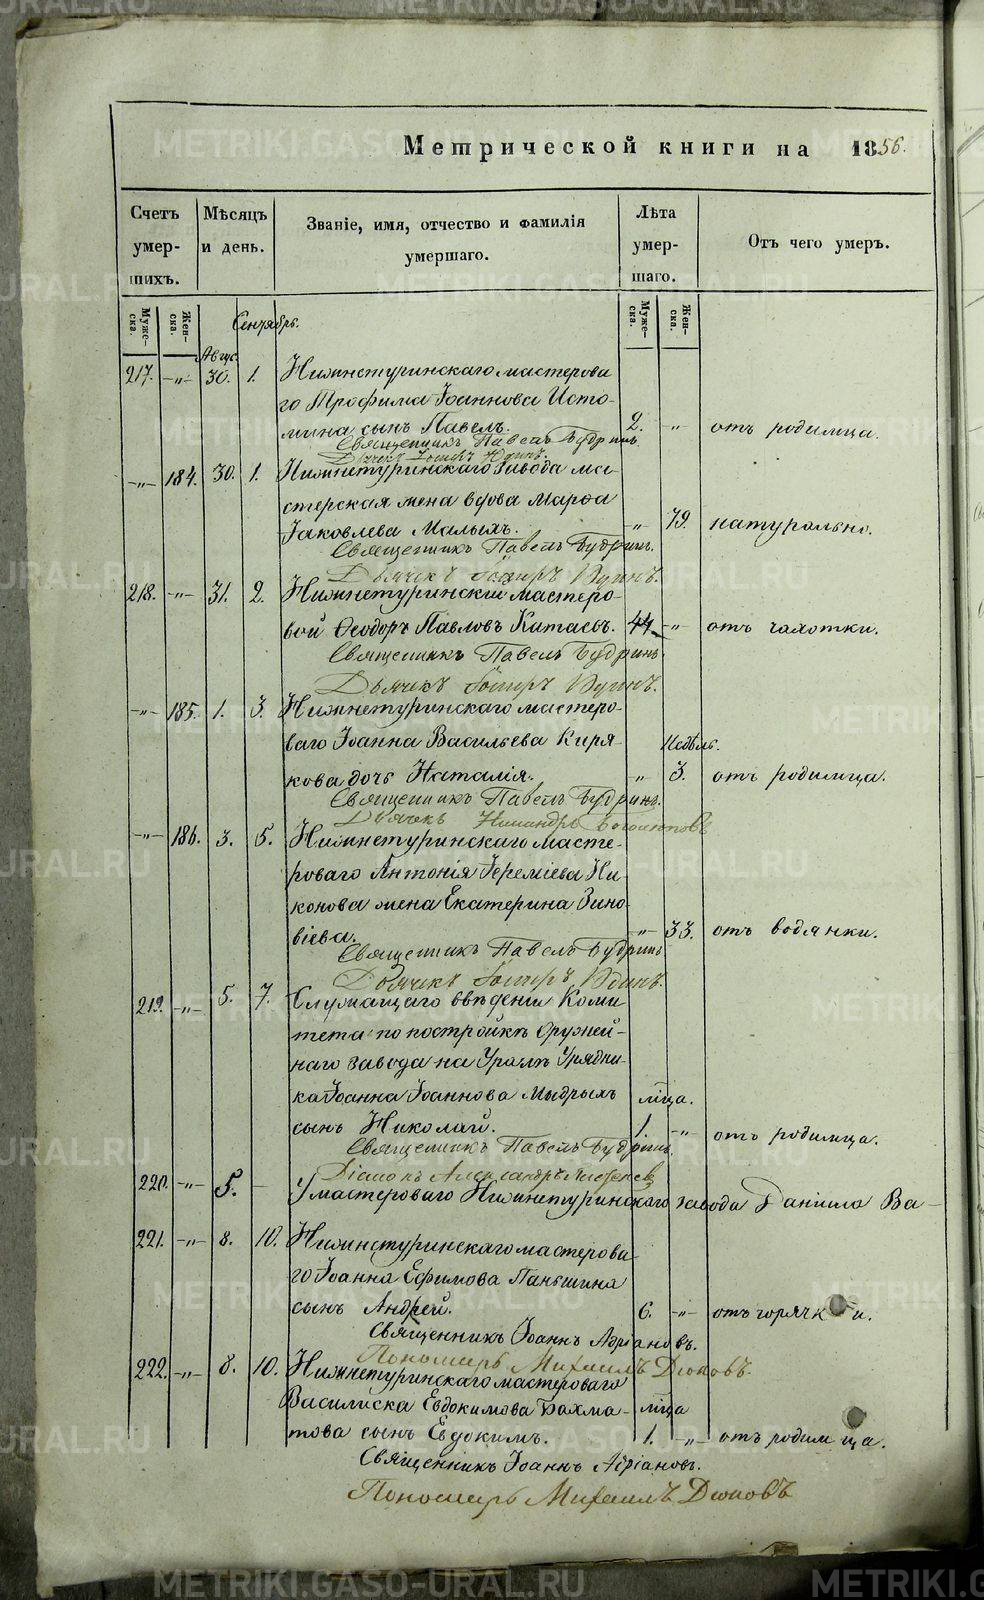 Метрической книги на 1856.
Счетъ умершихъ.
Мѣсяцъ и день.
Званіе, имя, отчество и фамилія умершаго.
Лѣта умершаго.
Отъ чего умеръ.
Мужеска. Женска. Сентябрь. Мужеска. Женска.
Авгус.
217. -„- 30. 1. Нижнетуринскаго мастерова
го Трофима Іоаннова Исто-
мина сынъ Павелъ. 2. „ отъ родимца.
Священникъ Павелъ Будринъ.
Дьячекъ
-„- 184. 30. 1. Нижнетуринскаго завода ма-
стерская жена вдова Марѳа
Іаковлева Малыхъ. „ 79. натурально.
Священникъ Павелъ Будринъ.
Дьячекъ
218. -„- 31. 2. Нижнетуринскій мастеро-
вой Ѳеодоръ Павловъ Катаевъ. 44. -„- отъ чахотки.
Священникъ Павелъ Будринъ.
Дьячекъ
-„- 185. 1. 3. Нижнетуринскаго мастеро-
ваго Іоанна Васильева Киря- Недѣль.
кова дочь Наталія. „ 3. отъ родимца.
Священникъ Павелъ Будринъ.
Дьячекъ
-„- 186. 3. 5. Нижнетуринскаго масте-
роваго Антонія Іереміева Ни-
конова жена Екатерина Зино-
віева. -„- 33. отъ водянки.
Священникъ Павелъ Будринъ
Дьячекъ
219. -„- 5. 7. Служащаго введеніи Коми
тета по постройкѣ Оружей-
наго завода на Уралѣ Урядни-
ка Іоанна Іоаннова Мыдрыхъ мѣца.
сынъ Николай. 1. -„- отъ родимца.
Священникъ Павелъ Будринъ.
Діаконъ Александръ
220. -„- 5. — У мастероваго Нижнетуринскаго завода Даніила Ва-
221. -„- 8. 10. Нижнетуринскаго мастерова
го Іоанна Ефимова Паньшина
сынъ Андрей. 6. -„- отъ горячки.
Священникъ Іоаннъ Адріановъ.
Пономарь Михаилъ Дюковъ.
222. -„- 8. 10. Нижнетуринскаго мастероваго
Василиска Евдокимова Бахма- мѣца
това сынъ Евдокимъ. 1. -„- отъ родимца.
Священникъ Іоаннъ Адріановъ.
Пономарь Михаилъ Дюковъ
METRIKI.GASO-URAL.RU